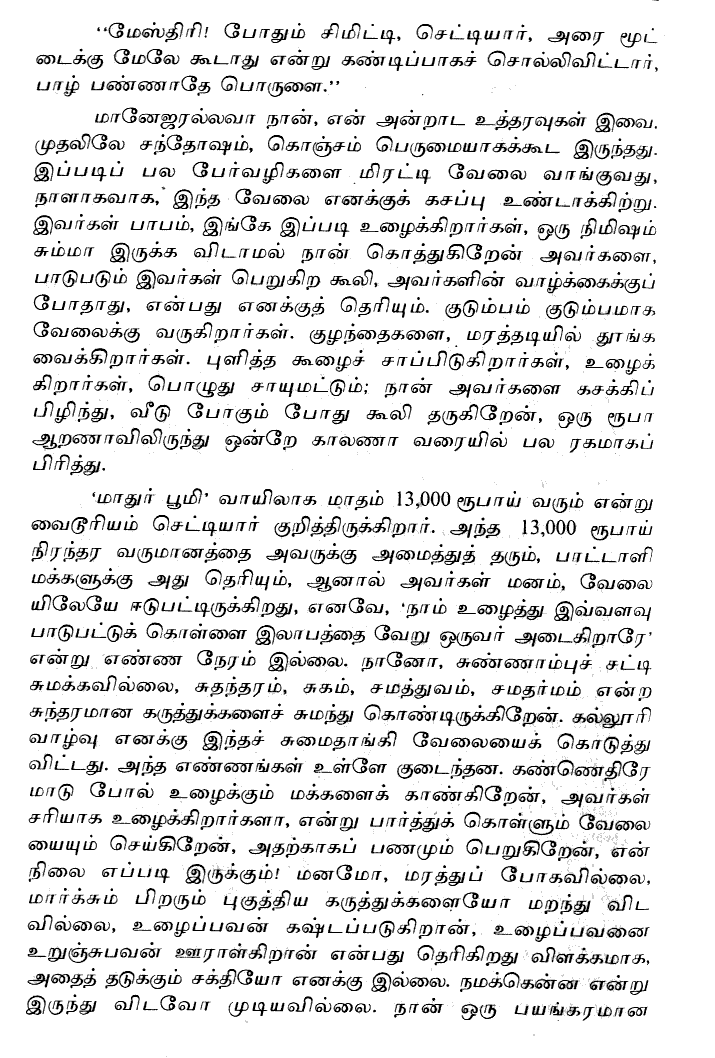 “மேஸ்திரி! போதும் சிமிட்டி, செட்டியார், அரை மூட்
டைக்கு மேலே கூடாது என்று கண்டிப்பாகச் சொல்லிவிட்டார்,
பாழ் பண்ணாதே பொருளை.”
மானேஜரல்லவா நான், என் அன்றாட உத்தரவுகள் இவை.
முதலிலே சந்தோஷம், கொஞ்சம் பெருமையாகக்கூட இருந்தது.
இப்படிப் பல பேர்வழிகளை மிரட்டி வேலை வாங்குவது,
நாளாகவாக, இந்த வேலை எனக்குக் கசப்பு உண்டாக்கிற்று.
இவர்கள் பாபம், இங்கே இப்படி உழைக்கிறார்கள், ஒரு நிமிஷம்
சும்மா இருக்க விடாமல் நான் கொத்துகிறேன் அவர்களை,
பாடுபடும் இவர்கள் பெறுகிற கூலி, அவர்களின் வாழ்க்கைக்குப்
போதாது, என்பது எனக்குத் தெரியும். குடும்பம் குடும்பமாக
வேலைக்கு வருகிறார்கள். குழந்தைகளை, மரத்தடியில் தூங்க
வைக்கிறார்கள். புளித்த கூழைச் சாப்பிடுகிறார்கள், உழைக்
கிறார்கள், பொழுது சாயுமட்டும்; நான் அவர்களை கசக்கிப்
பிழிந்து, வீடு போகும் போது கூலி தருகிறேன், ஒரு ரூபா
ஆறணாவிலிருந்து ஒன்றே காலணா வரையில் பல ரகமாகப்
பிரித்து.
‘மாதுர் பூமி’ வாயிலாக மாதம் 13,000 ரூபாய் வரும் என்று
வைடூரியம் செட்டியார் குறித்திருக்கிறார். அந்த 13,000 ரூபாய்
நிரந்தர வருமானத்தை அவருக்கு அமைத்துத் தரும், பாட்டாளி
மக்களுக்கு அது தெரியும், ஆனால் அவர்கள் மனம், வேலை
யிலேயே ஈடுபட்டிருக்கிறது, எனவே, ‘நாம் உழைத்து இவ்வளவு
பாடுபட்டுக் கொள்ளை இலாபத்தை வேறு ஒருவர் அடைகிறாரே’
என்று எண்ண நேரம் இல்லை. நானோ, சுண்ணாம்புச் சட்டி
சுமக்கவில்லை, சுதந்தரம், சுகம், சமத்துவம், சமதர்மம் என்ற
சுந்தரமான கருத்துக்களைச் சுமந்து கொண்டிருக்கிறேன். கல்லூரி
வாழ்வு எனக்கு இந்தச் சுமைதாங்கி வேலையைக் கொடுத்து
விட்டது. அந்த எண்ணங்கள் உள்ளே குடைந்தன. கண்ணெதிரே
மாடு போல் உழைக்கும் மக்களைக் காண்கிறேன், அவர்கள்
சரியாக உழைக்கிறார்களா, என்று பார்த்துக் கொள்ளும் வேலை
யையும் செய்கிறேன், அதற்காகப் பணமும் பெறுகிறேன், என்
நிலை எப்படி இருக்கும்! மனமோ, மரத்துப் போகவில்லை,
மார்க்சும் பிறரும் புகுத்திய கருத்துக்களையோ மறந்து விட
வில்லை, உழைப்பவன் கஷ்டப்படுகிறான், உழைப்பவனை
உறுஞ்சுபவன் ஊராள்கிறான் என்பது தெரிகிறது விளக்கமாக,
அதைத் தடுக்கும் சக்தியோ எனக்கு இல்லை. நமக்கென்ன என்று
இருந்து விடவோ முடியவில்லை. நான் ஒரு பயங்கரமான